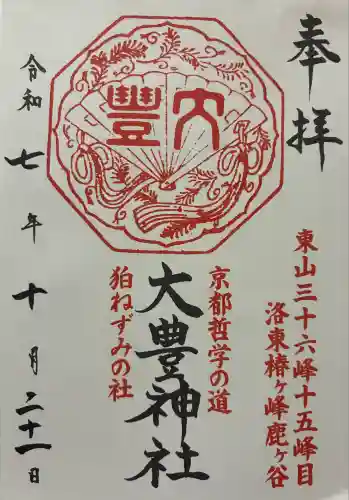 奉拝
東山三十六峰十五峰目
洛東椿ヶ峰鹿ヶ谷
京都哲学の道
大豊
大豐神社
狛ねずみの社
令和七年十月二十一日